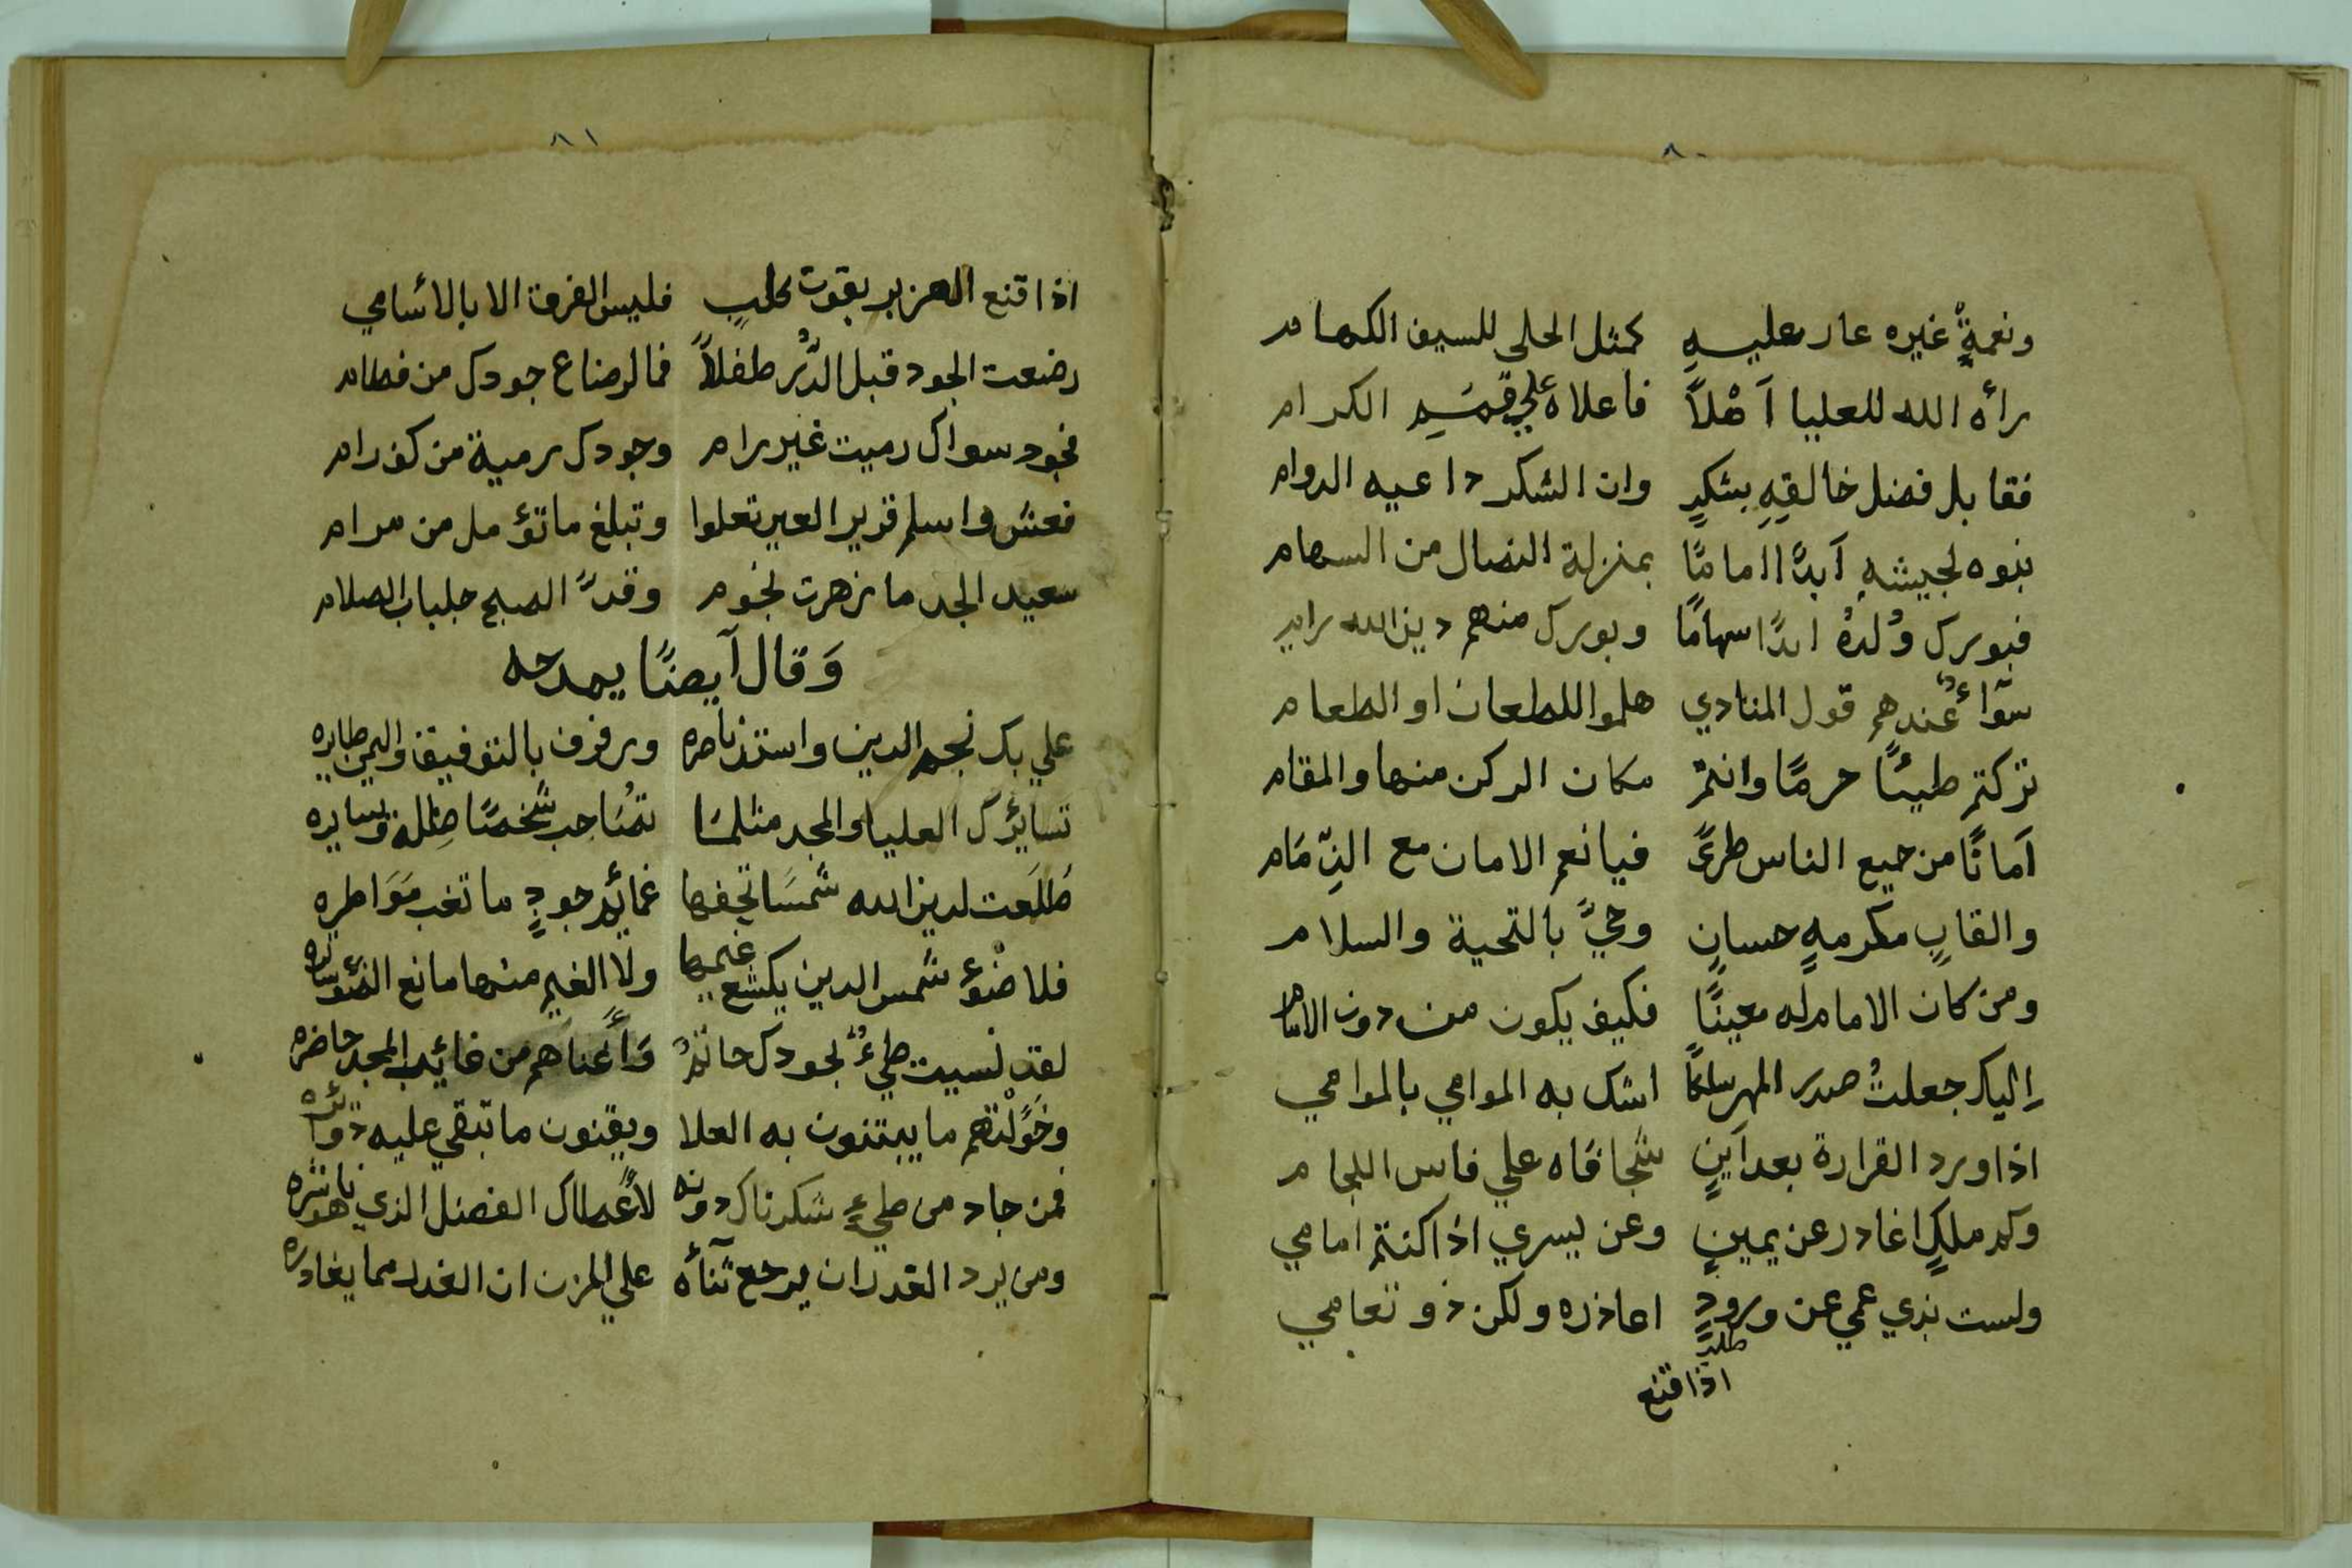 ٨٠
ونعمةٌ غيره عار عليهِ كمثل الحلي للسيف الكهام
رأه الله للعليا اَهْلاً فاعلاه علي قممِ الكرام
فقابل فضل خالقِهِ بشكرٍ وان الشكر داعيه الدوام
بنوه لجيشهِ اَبدًا امامًا بمنزلة النصال من السهام
فبورك وُلدهُ ابدًا سهامًا وبورك منهم دين الله رام
سوآءٌ عندهم قول المنادي هلموا للطعان او الطعام
تركتم طيئًا حرمًا وانتم مكان الركن منها والمقام
اَمانًا من جميع الناس طرًّ فيا نعم الامان مع الذِّمَام
والقابٍ مكرمهٍ حسانٍ وحيّ بالتحية والسلام
ومن كان الامام له معينًا فكيف يكون من دون الامام
اِليك جعلتُ صدر المهر سلكًا اشك به الموامي بالموامي
اذا ورد القرارة بعد اَينٍ شجا فاه علي فاس اللجام
وكم ملكٍ اغادر عن يمينٍ وعن يسري اذا كنتم امامي
ولست بذي عمي عن ورودِ اعاذره ولكن ذو تعامي
اذا قنع
٨١
اذا قنع الهزبر بقوت كلبٍ فليس الفرق الا بالاسامي
رضعت الجود قبل الدَّرِ طفلاً فما لرضاع جودك من فطام
فجود سواك رميت غير رام وجودك رمية من كف رام
فعش واسلم قرير العين تعلوا وتبلغ ما تؤمل من مرام
سعيد الجد ما زهرت نجوم وقدَّ الصبح جلباب الظلام
وَقال اَيضًا يمدحه
علي بك نجم الدين واستن ناصره ورفرف بالتوفيق واليمن طايره
تسايرك العليا والمجد مثلما تصَاحب شخصًا ظله ويسايره
طَلَعت لدين الله شمسًا تحفها غمائم جودٍ ما تغب مَوَاطره
فلا ضوء شمس الدين يكشع غيمها ولا الغيم منها مانع الضوء ساتره
لقد نسيت طيءٌ بجودك حاتمًا وَأغناهم من غائب المجد حاضره
وخَوَّلْتهم ما يبتنون به العلا ويقنون ما تبقي عليه دوائره
فمن جاد من طيءٍ شكرناك دونه لأعطاك الفضل الذي هو ناشره
ومن يرد الغدران يرجع ثنآءه علي المزن ان الغدر مما يغادره